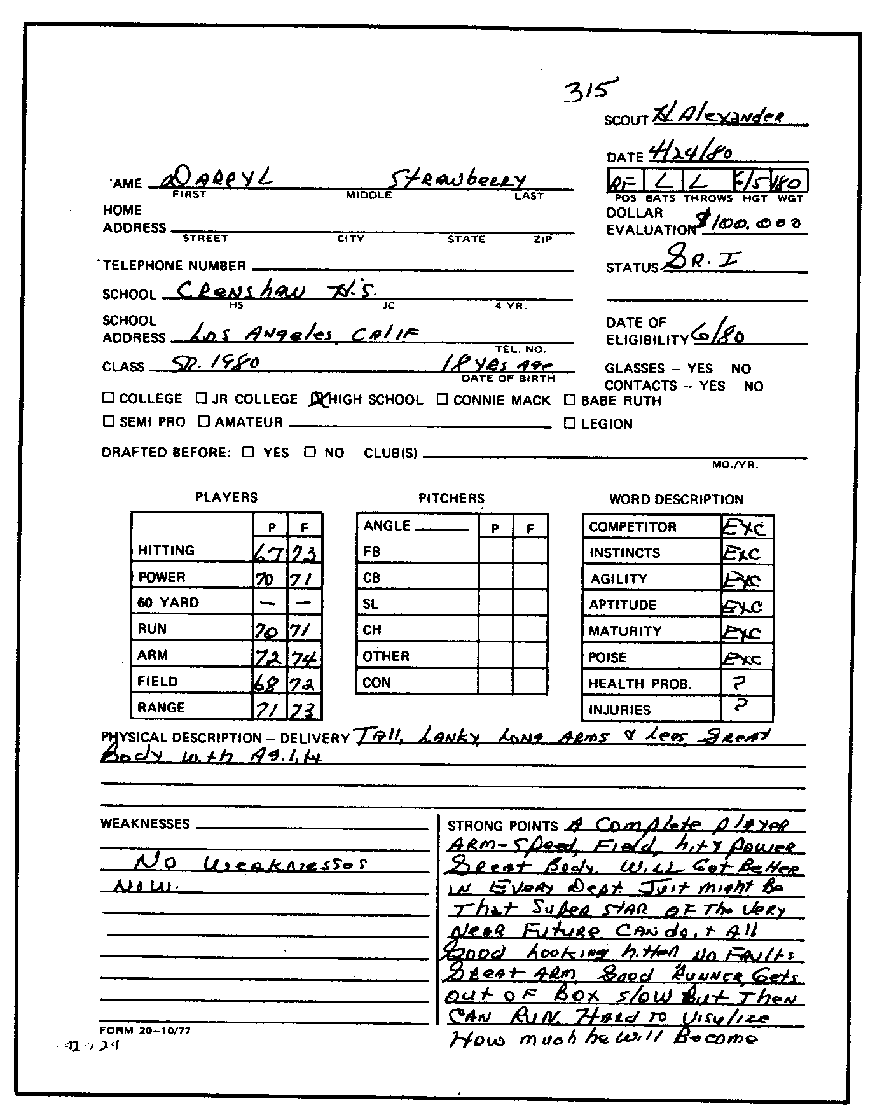 315
SCOUT H Alexander
DATE 4/24/80
AME DARRYL STRAWBERRY
FIRST MIDDLE LAST
RF L L 6/5 180
POS BATS THROWS HGT WGT
HOME
ADDRESS
STREET CITY STATE ZIP
DOLLAR
EVALUATION $100,000
TELEPHONE NUMBER
STATUS SR. I
SCHOOL CRENSHAW H.S.
HS JC 4 YR.
SCHOOL
ADDRESS LOS ANGELES, CALIF
TEL. NO.
DATE OF
ELIGIBILITY 6/80
CLASS SR. 1980 18 YRS AGE
DATE OF BIRTH
GLASSES – YES NO
CONTACTS – YES NO
☐ COLLEGE ☐ JR COLLEGE ☒ HIGH SCHOOL ☐ CONNIE MACK ☐ BABE RUTH
☐ SEMI PRO ☐ AMATEUR ☐ LEGION
DRAFTED BEFORE: ☐ YES ☐ NO CLUB(S)
MO./YR.
PLAYERS
P F
HITTING 67 73
POWER 70 71
60 YARD – –
RUN 70 71
ARM 72 74
FIELD 68 72
RANGE 71 73
PITCHERS
ANGLE P F
FB
CB
SL
CH
OTHER
CON
WORD DESCRIPTION
COMPETITOR EXC
INSTINCTS EXC
AGILITY EXC
APTITUDE EXC
MATURITY EXC
POISE EXC
HEALTH PROB. ?
INJURIES ?
PHYSICAL DESCRIPTION – DELIVERY Tall, Lanky, Long Arms & Legs, Great
Body with Agility
WEAKNESSES
No Weaknesses
Now.
STRONG POINTS A Complete player
ARM-Speed, Field, hit & power
Great Body. Will Get Better
in Every Dept Just might Be
That Super STAR OF The Very
Near Future CAN do it All
Good Looking hitter No Faults
Great ARM, Good Runner, Gets
out of Box slow But Then
CAN RUN. HARD TO Visulize
How much he will Become
FORM 20–10/77